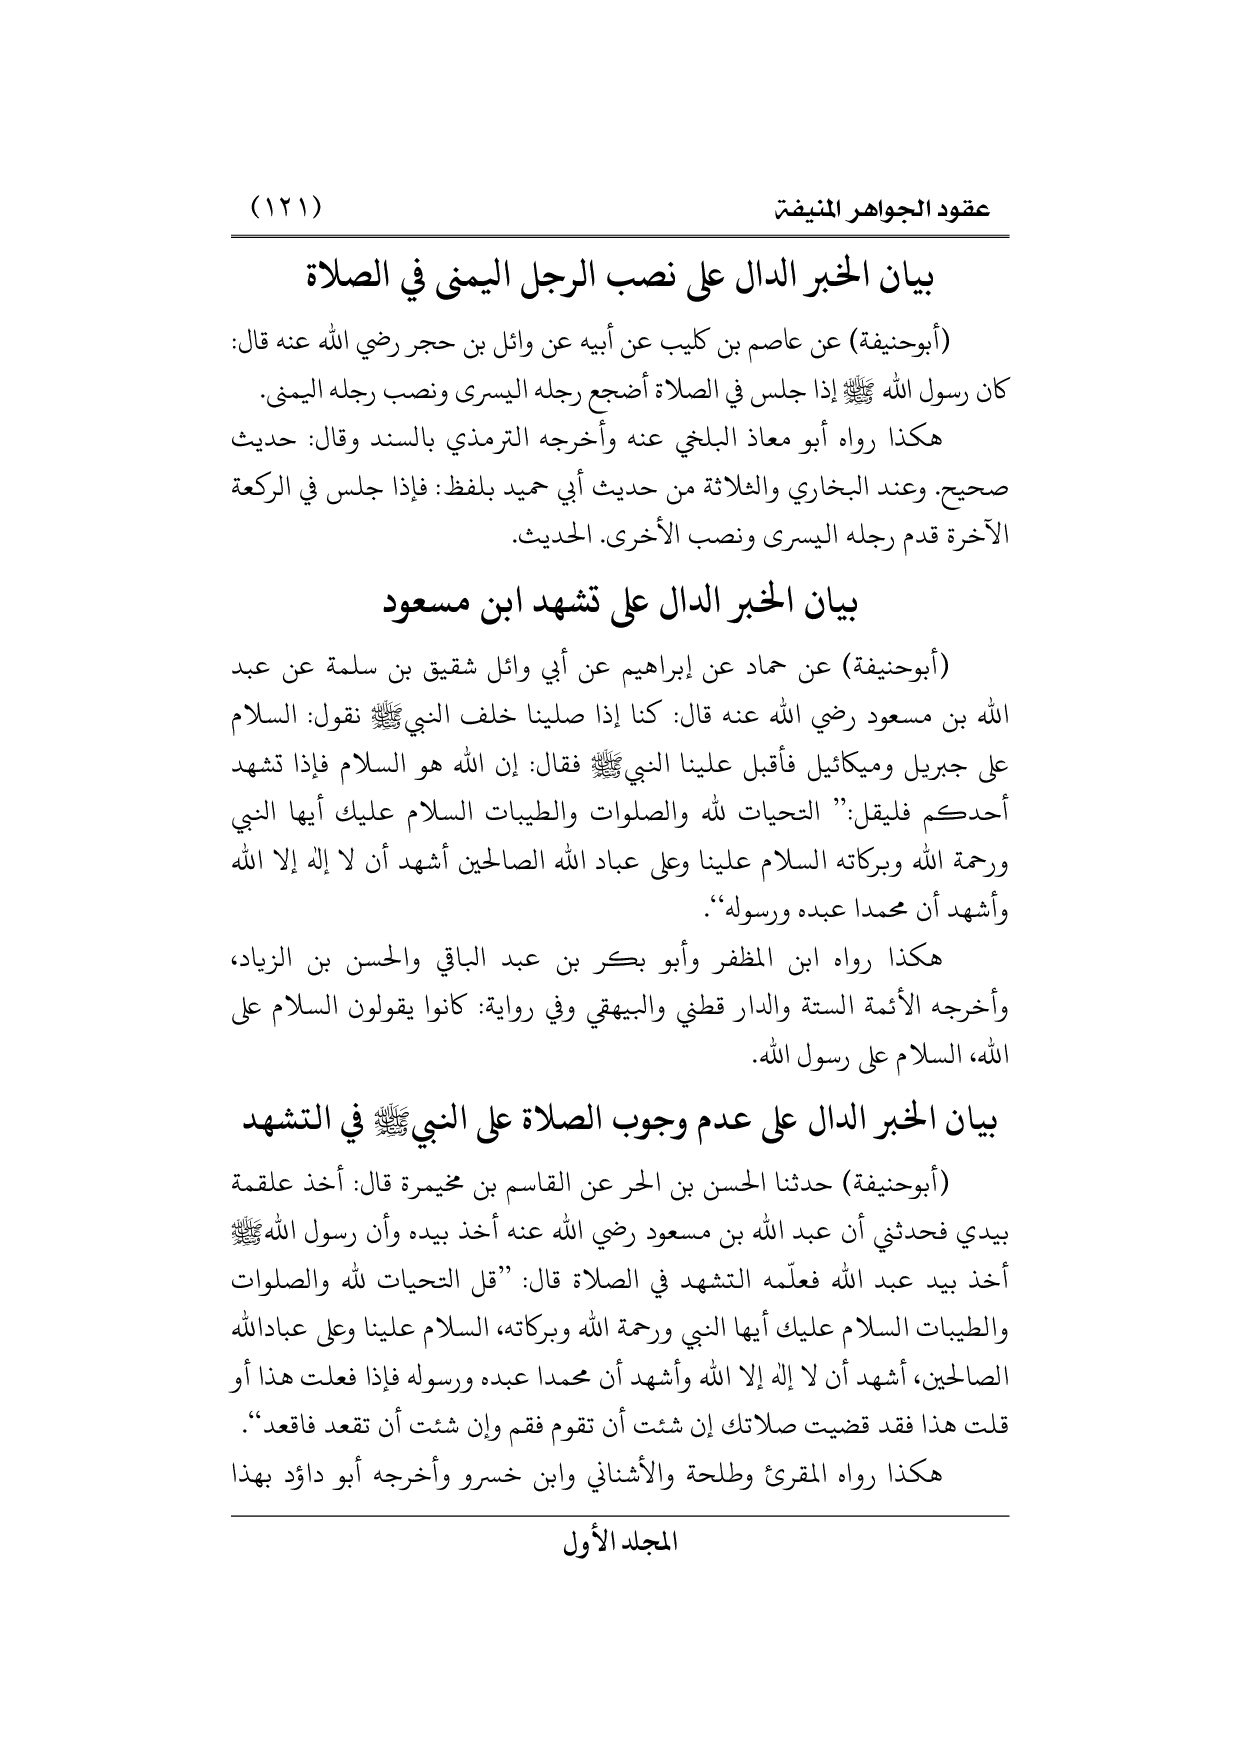 عقود الجواهر المنيفة (١٢١)
بيان الخبر الدال على نصب الرجل اليمنى في الصلاة
(أبوحنيفة) عن عاصم بن كليب عن أبيه عن وائل بن حجر رضي الله عنه قال:
كان رسول الله ﷺ إذا جلس في الصلاة أضجع رجله اليسرى ونصب رجله اليمنى.
هكذا رواه أبو معاذ البلخي عنه وأخرجه الترمذي بالسند وقال: حديث
صحيح. وعند البخاري والثلاثة من حديث أبي حميد بلفظ: فإذا جلس في الركعة
الآخرة قدم رجله اليسرى ونصب الأخرى. الحديث.
بيان الخبر الدال على تشهد ابن مسعود
(أبوحنيفة) عن حماد عن إبراهيم عن أبي وائل شقيق بن سلمة عن عبد
الله بن مسعود رضي الله عنه قال: كنا إذا صلينا خلف النبيﷺ نقول: السلام
على جبريل وميكائيل فأقبل علينا النبيﷺ فقال: إن الله هو السلام فإذا تشهد
أحدكم فليقل:’’ التحيات لله والصلوات والطيبات السلام عليك أيها النبي
ورحمة الله وبركاته السلام علينا وعلى عباد الله الصالحين أشهد أن لا إله إلا الله
وأشهد أن محمدا عبده ورسوله‘‘.
هكذا رواه ابن المظفر وأبو بكر بن عبد الباقي والحسن بن الزياد،
وأخرجه الأئمة الستة والدار قطني والبيهقي وفي رواية: كانوا يقولون السلام على
الله، السلام على رسول الله.
بيان الخبر الدال على عدم وجوب الصلاة على النبيﷺ في التشهد
(أبوحنيفة) حدثنا الحسن بن الحر عن القاسم بن مخيمرة قال: أخذ علقمة
بيدي فحدثني أن عبد الله بن مسعود رضي الله عنه أخذ بيده وأن رسول اللهﷺ
أخذ بيد عبد الله فعلّمه التشهد في الصلاة قال: ’’قل التحيات لله والصلوات
والطيبات السلام عليك أيها النبي ورحمة الله وبركاته، السلام علينا وعلى عبادالله
الصالحين، أشهد أن لا إله إلا الله وأشهد أن محمدا عبده ورسوله فإذا فعلت هذا أو
قلت هذا فقد قضيت صلاتك إن شئت أن تقوم فقم وإن شئت أن تقعد فاقعد‘‘.
هكذا رواه المقرئ وطلحة والأشناني وابن خسرو وأخرجه أبو داؤد بهذا
المجلد الأول